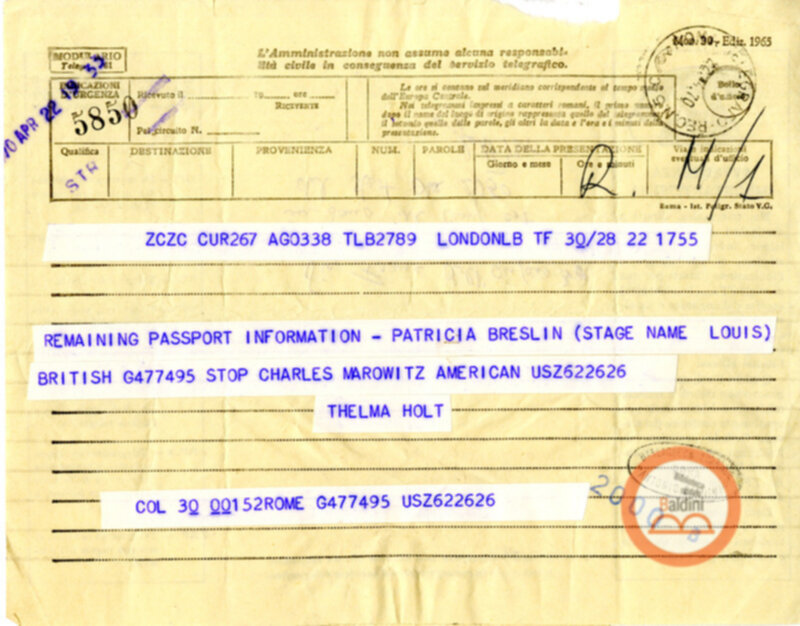 MODULARIO
L'Amministrazione non assume alcuna responsabi-
lità civile in conseguenza del servizio telegrafico.
Mod. 30 - Ediz. 1965
70 APR 22 19 32
INDICAZIONI
D'URGENZA
5850
Ricevuto il
ore
RICEVENTE
Pel circuito N.
Le ore si contano sul meridiano corrispondente al tempo medio
dell'Europa Centrale.
Nei telegrammi impressi a caratteri romani, il primo numero
dopo il nome del luogo di origine rappresenta quello del telegramma,
il secondo quello delle parole, gli altri la data e l'ora e i minuti della
presentazione.
Bollo
d'ufficio
Qualifica
DESTINAZIONE
PROVENIENZA
NUM.
PAROLE
DATA DELLA PRESENTAZIONE
Giorno e mese
Ore e minuti
Via e indicazioni
eventuali d'ufficio
STR
R. M/1
Roma - Ist. Poligr. Stato V.C.
ZCZC CUR267 AGO338 TLB2789 LONDONLB TF 30/28 22 1755
REMAINING PASSPORT INFORMATION - PATRICIA BRESLIN (STAGE NAME LOUIS)
BRITISH G477495 STOP CHARLES MAROWITZ AMERICAN USZ622626
THELMA HOLT
COL 30 00152ROME G477495 USZ622626
2000
Biblioteca
Baldini